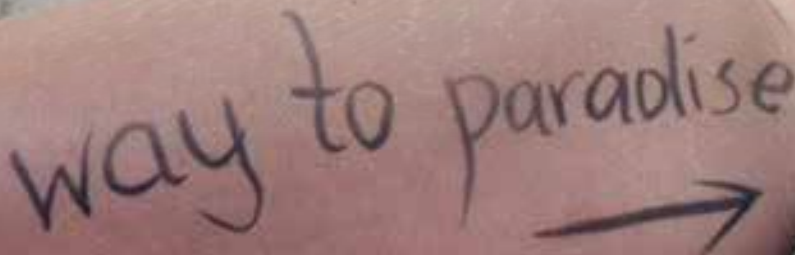 way to paradise